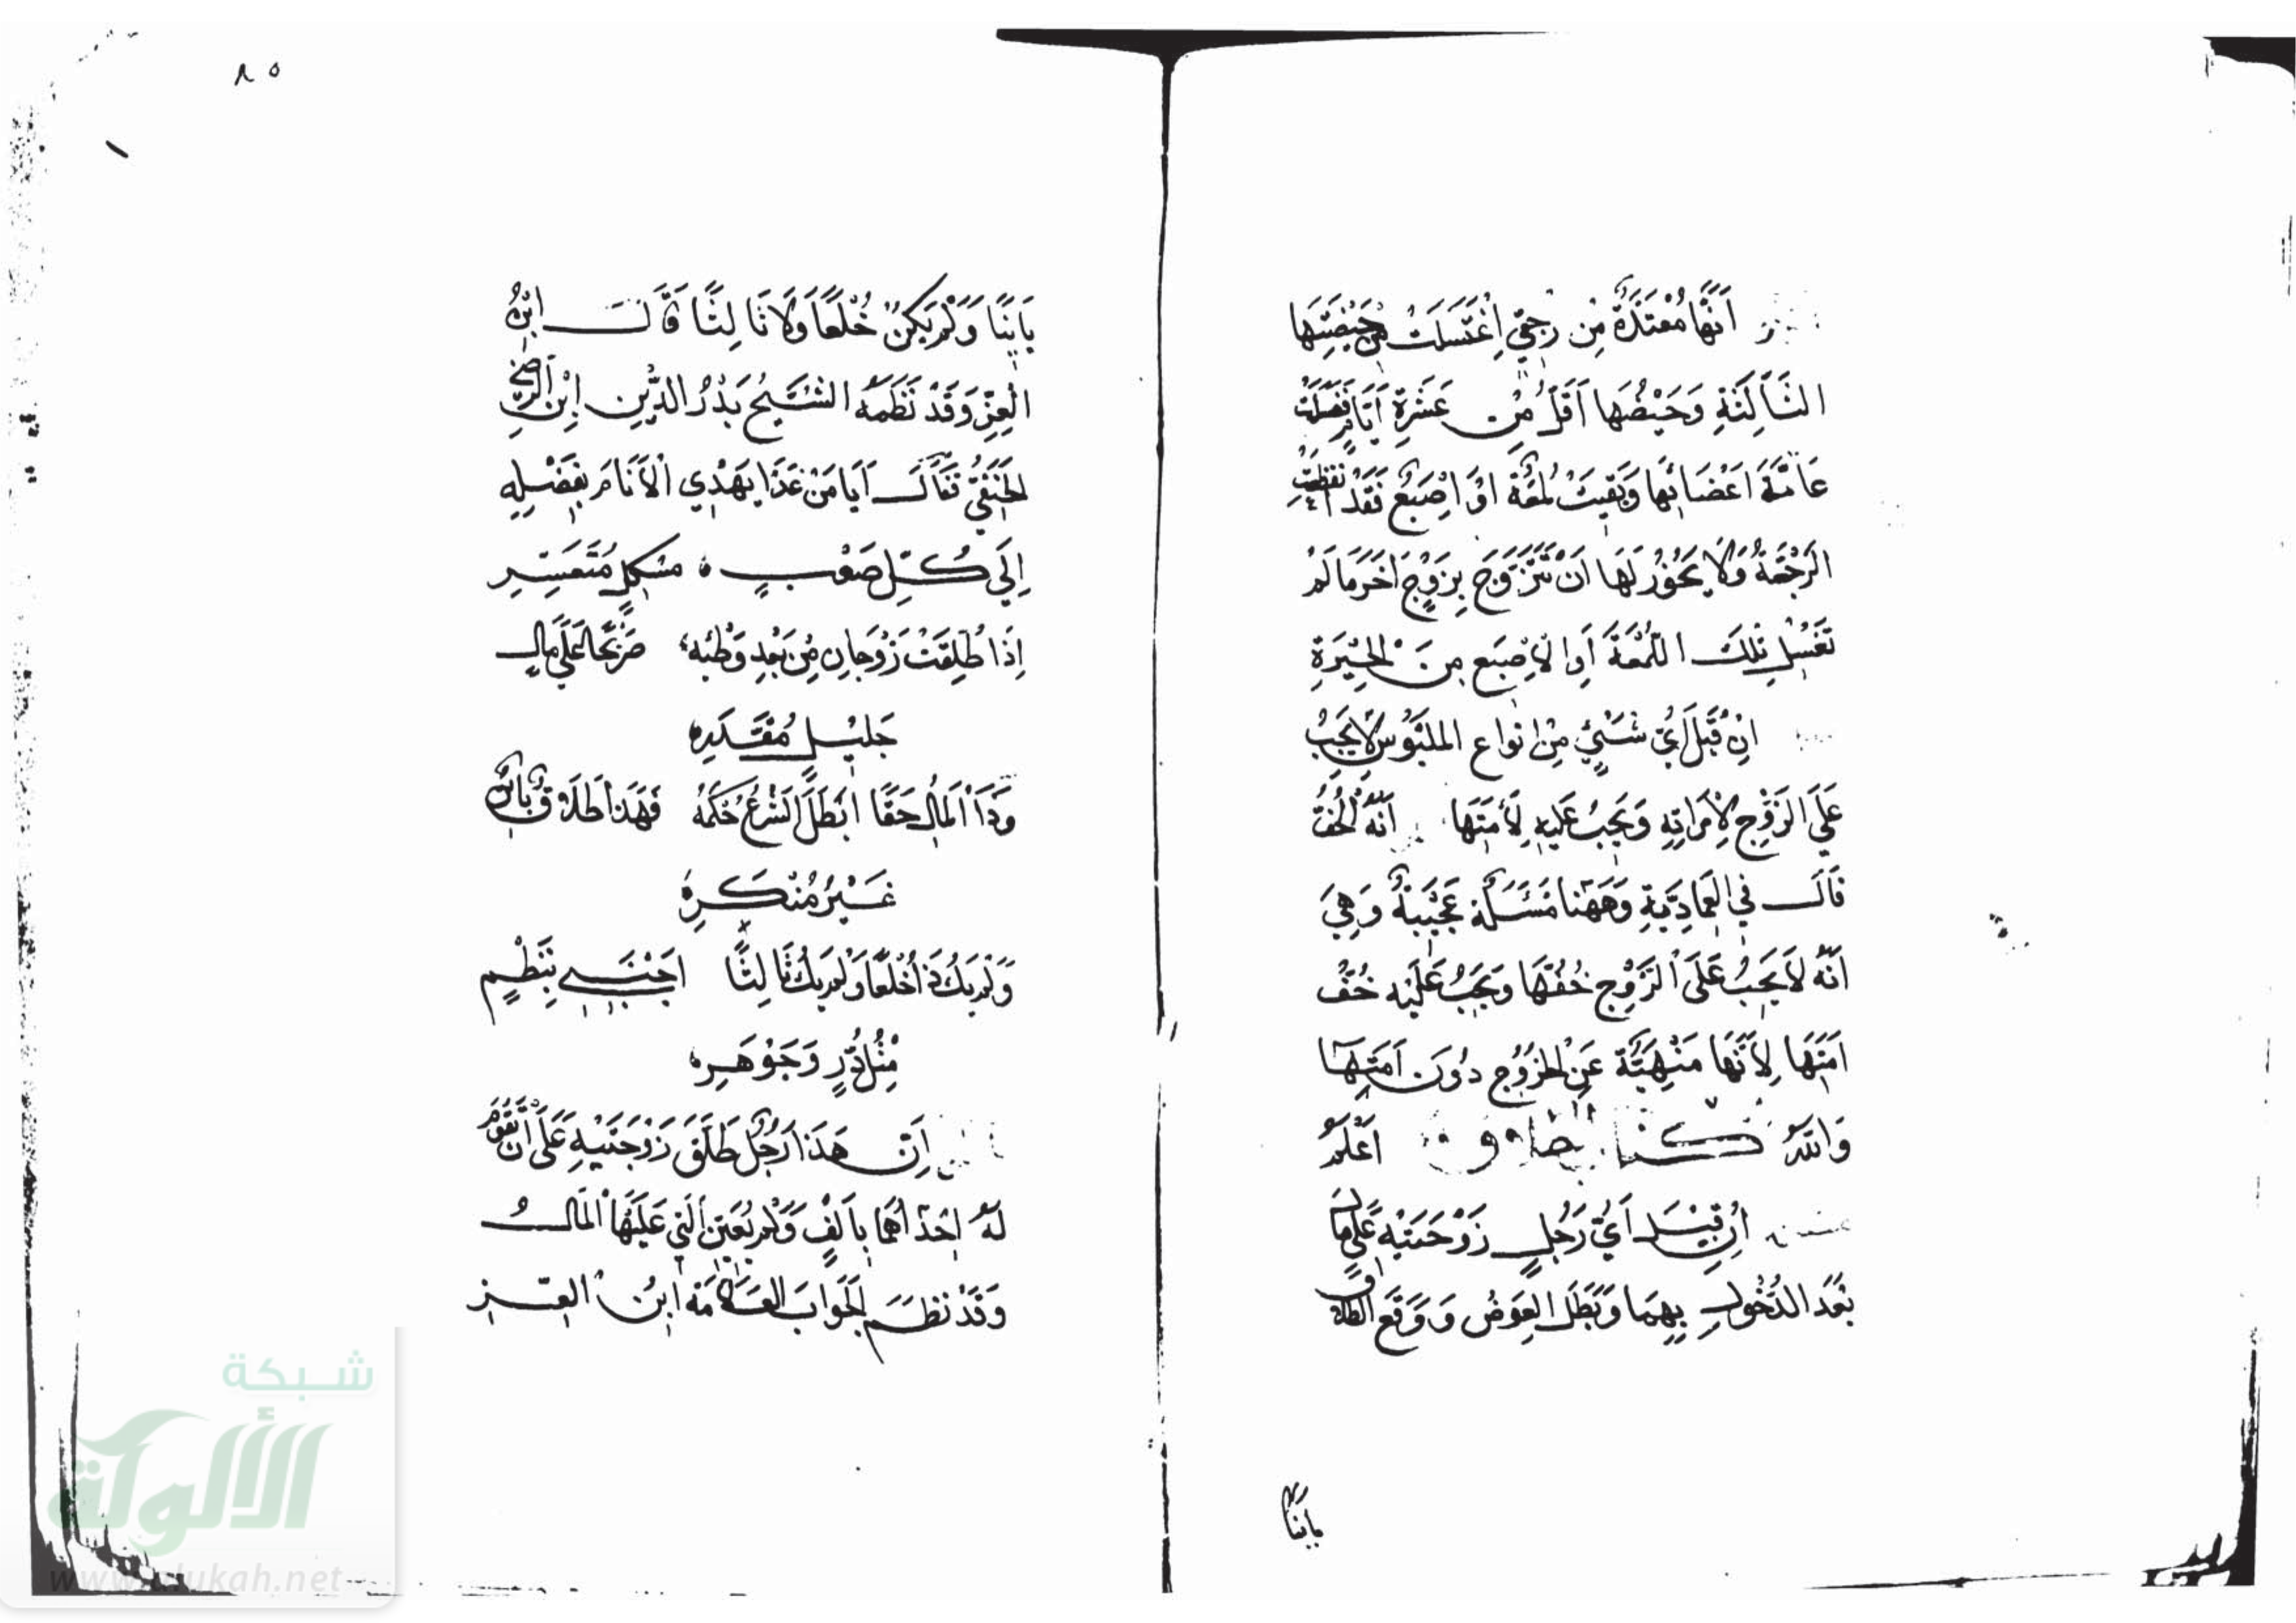 أَنَّهَا مُعْتَدَّةٌ مِن رَجعيٍّ اِغْتَسَلَتْ مِن حَيْضَتِهَا
الثَّالِثَةِ وَحَيْضُهَا اَقَلُّ مِنْ عَشَرَةِ اَيَّامٍ فَغَسَلَتْ
عَامَّةَ اَعْضَائِهَا وَبَقِيَتْ لُمْعَةٌ اَوْ اِصْبَعٌ فَقَدْ انْقَطَعَتْ
الرَّجْعَةُ وَلَا يَجُوزُ لَهَا اَنْ تَتَزَوَّجَ بِزَوْجٍ اٰخَرَ مَا لَمْ
تَغْسِلْ تِلْكَ اللُّمْعَةَ اَوِ الْاِصْبَع مِنَ الْحِيَرَةِ
اِنْ قِيْلَ اَيُّ شَيْئٍ مِنْ انواع الملبُوس لَا يَجِبُ
عَلَى الزَّوْجِ لِامْرَاتِهِ وَيَجِبُ عَلَيْهِ لِأَمَتِهَا أَنَّهُ الْخُفُّ
قَالَ فِي الْعِمَادِيَّةِ وَهَهُنَا مَسْئَلَة عَجِيْبَةٌ وَهِيَ
اَنَّهُ لَا يَجِبُ عَلَى الزَّوْجِ خُفُّهَا وَيَجِبُ عَلَيْهِ خُفُّ
اَمَتِهَا لِاَنَّهَا مَنْهِيَّةٌ عَنِ الْخُرُوجِ دُونَ اَمَتِهَا
وَاللّٰهُ اَعْلَمُ
اِنْ قِيْلَ اَيُّ رَجُلٍ زَوْجَتَيْهِ عَلَى مَال
بَعْدَ الدُّخُولِ بِهِمَا وَبَطَلَ الْعِوَضُ وَوَقَعَ الطلاق
باينًا
بَايِنًا وَلَمْ يَكُنْ خُلْعًا وَلَا ثَالِثًا قَالَ ابْنُ
الْعِزِّ وَقَدْ نَظَمَهُ الشَّيْخُ بَدْرُ الدِّينِ اِبْنُ الرَّضِيِّ
الْحَنَفِيُّ فَقَالَ اَيَا مَنْ غَدَا يَهْدِي الْاَنَامَ بِفَضْلِهِ
اِلَى كُلِّ صَعْبٍ ه مشكِلٍ مُتَعَسِّرِ
اِذَا طُلِّقَتْ زَوْجَانِ مِنْ بَعْدِ وَطْئِهِ صَرِيْحًا عَلَى مَالٍ
جَلِيْلٍ مُقَدَّرِه
وَذَا الْمَالُ حَقًّا اَبْطَلَ الشَّرْعُ حُكْمَهُ فَهَذَا طَلَاقٌ بَائِنٌ
غَيْرُ مُنْكَرِه
وَلَمْ يَكُ ذَا خُلْعًا وَلَمْ يَكُ ثَالِثًا اَجِبْنِي بِنَظْمٍ
مِثْلُ دُرٍّ وَجَوْهَرِه
اَنَّ هَذَا رَجُلٌ طَلَّقَ زَوْجَتَيْهِ عَلَى أَنْ تَقُوْمَ
لَهُ اِحْدَاهُمَا بِاَلْفٍ وَلَمْ يُعَيِّنِ الَّتِي عَلَيْهَا الْمَالُ
وَقَدْ نَظَمَ الْجَوَابَ الْعَلَّامَة ابْنُ الْعِزِّ
٨٥
شبكة
الألوكة
www.alukah.net